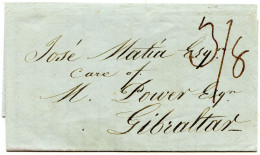 José Matia Esqr.
care of
M. Power Esqr
Gibraltar
3/8